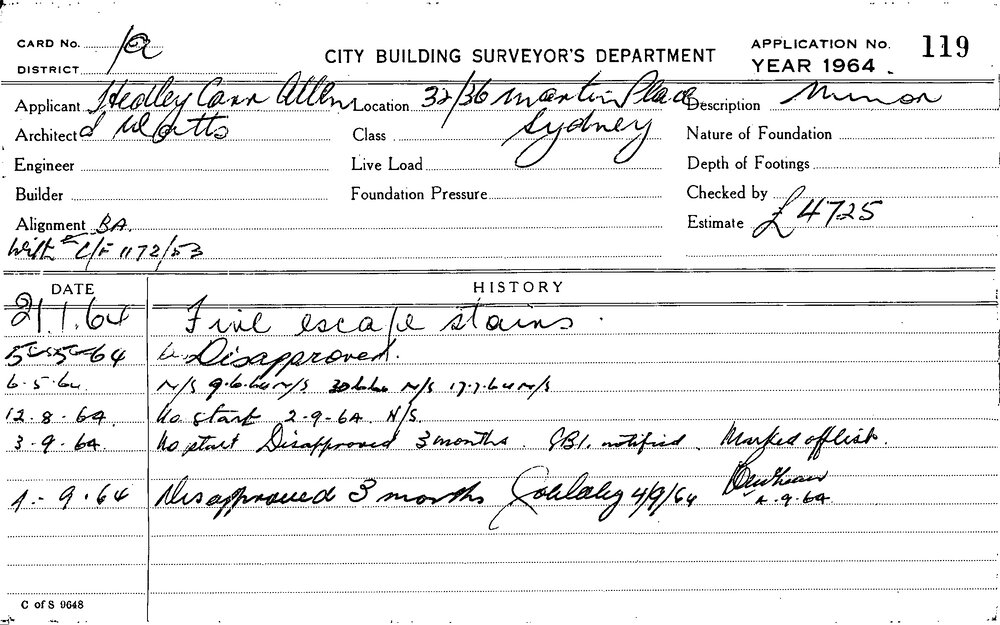 CARD No. 1a
DISTRICT
CITY BUILDING SURVEYOR'S DEPARTMENT
APPLICATION No. 119
YEAR 1964
Applicant Hedley Carr Allen
Location 32/36 Martin Place
Description Minor
Architect & Watts
Class Sydney
Nature of Foundation
Engineer
Live Load
Depth of Footings
Builder
Foundation Pressure
Checked by
Alignment BA.
Estimate £4725
With C/F 1172/53
DATE HISTORY
21.1.64 Fire escape stairs.
5-5-64 Disapproved.
6.5.64. N/S 9.6.64 N/S 30.6.64 N/S 17.7.64 N/S
12.8.64. No start 2-9-64. N/S.
3.9.64. No start Disapproved 3 months. notified. Marked off list.
4.9.64 Disapproved 3 months 4/9/64
4.9.64
C of S 9648